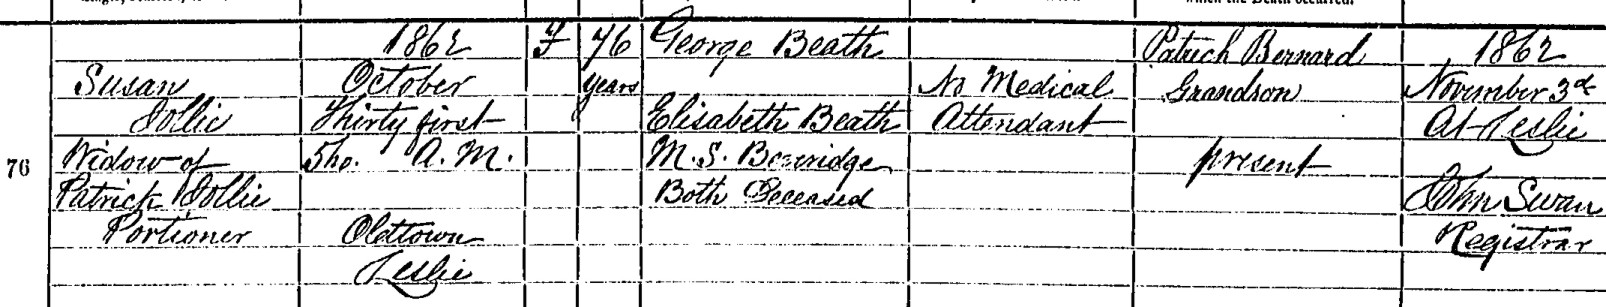 which the Death occurred.
76
Susan
Jollie
Widow of
Patrick Jollie
Portioner
1862
October
Thirty first
5ho. A.M.
Oldtown
Leslie
F
76
years
George Beath
Elisabeth Beath
M.S. Berridge
Both Deceased
No Medical
Attendant
Patrick Bernard
Grandson
present
1862
November 3d
At Leslie
John Swan
Registrar